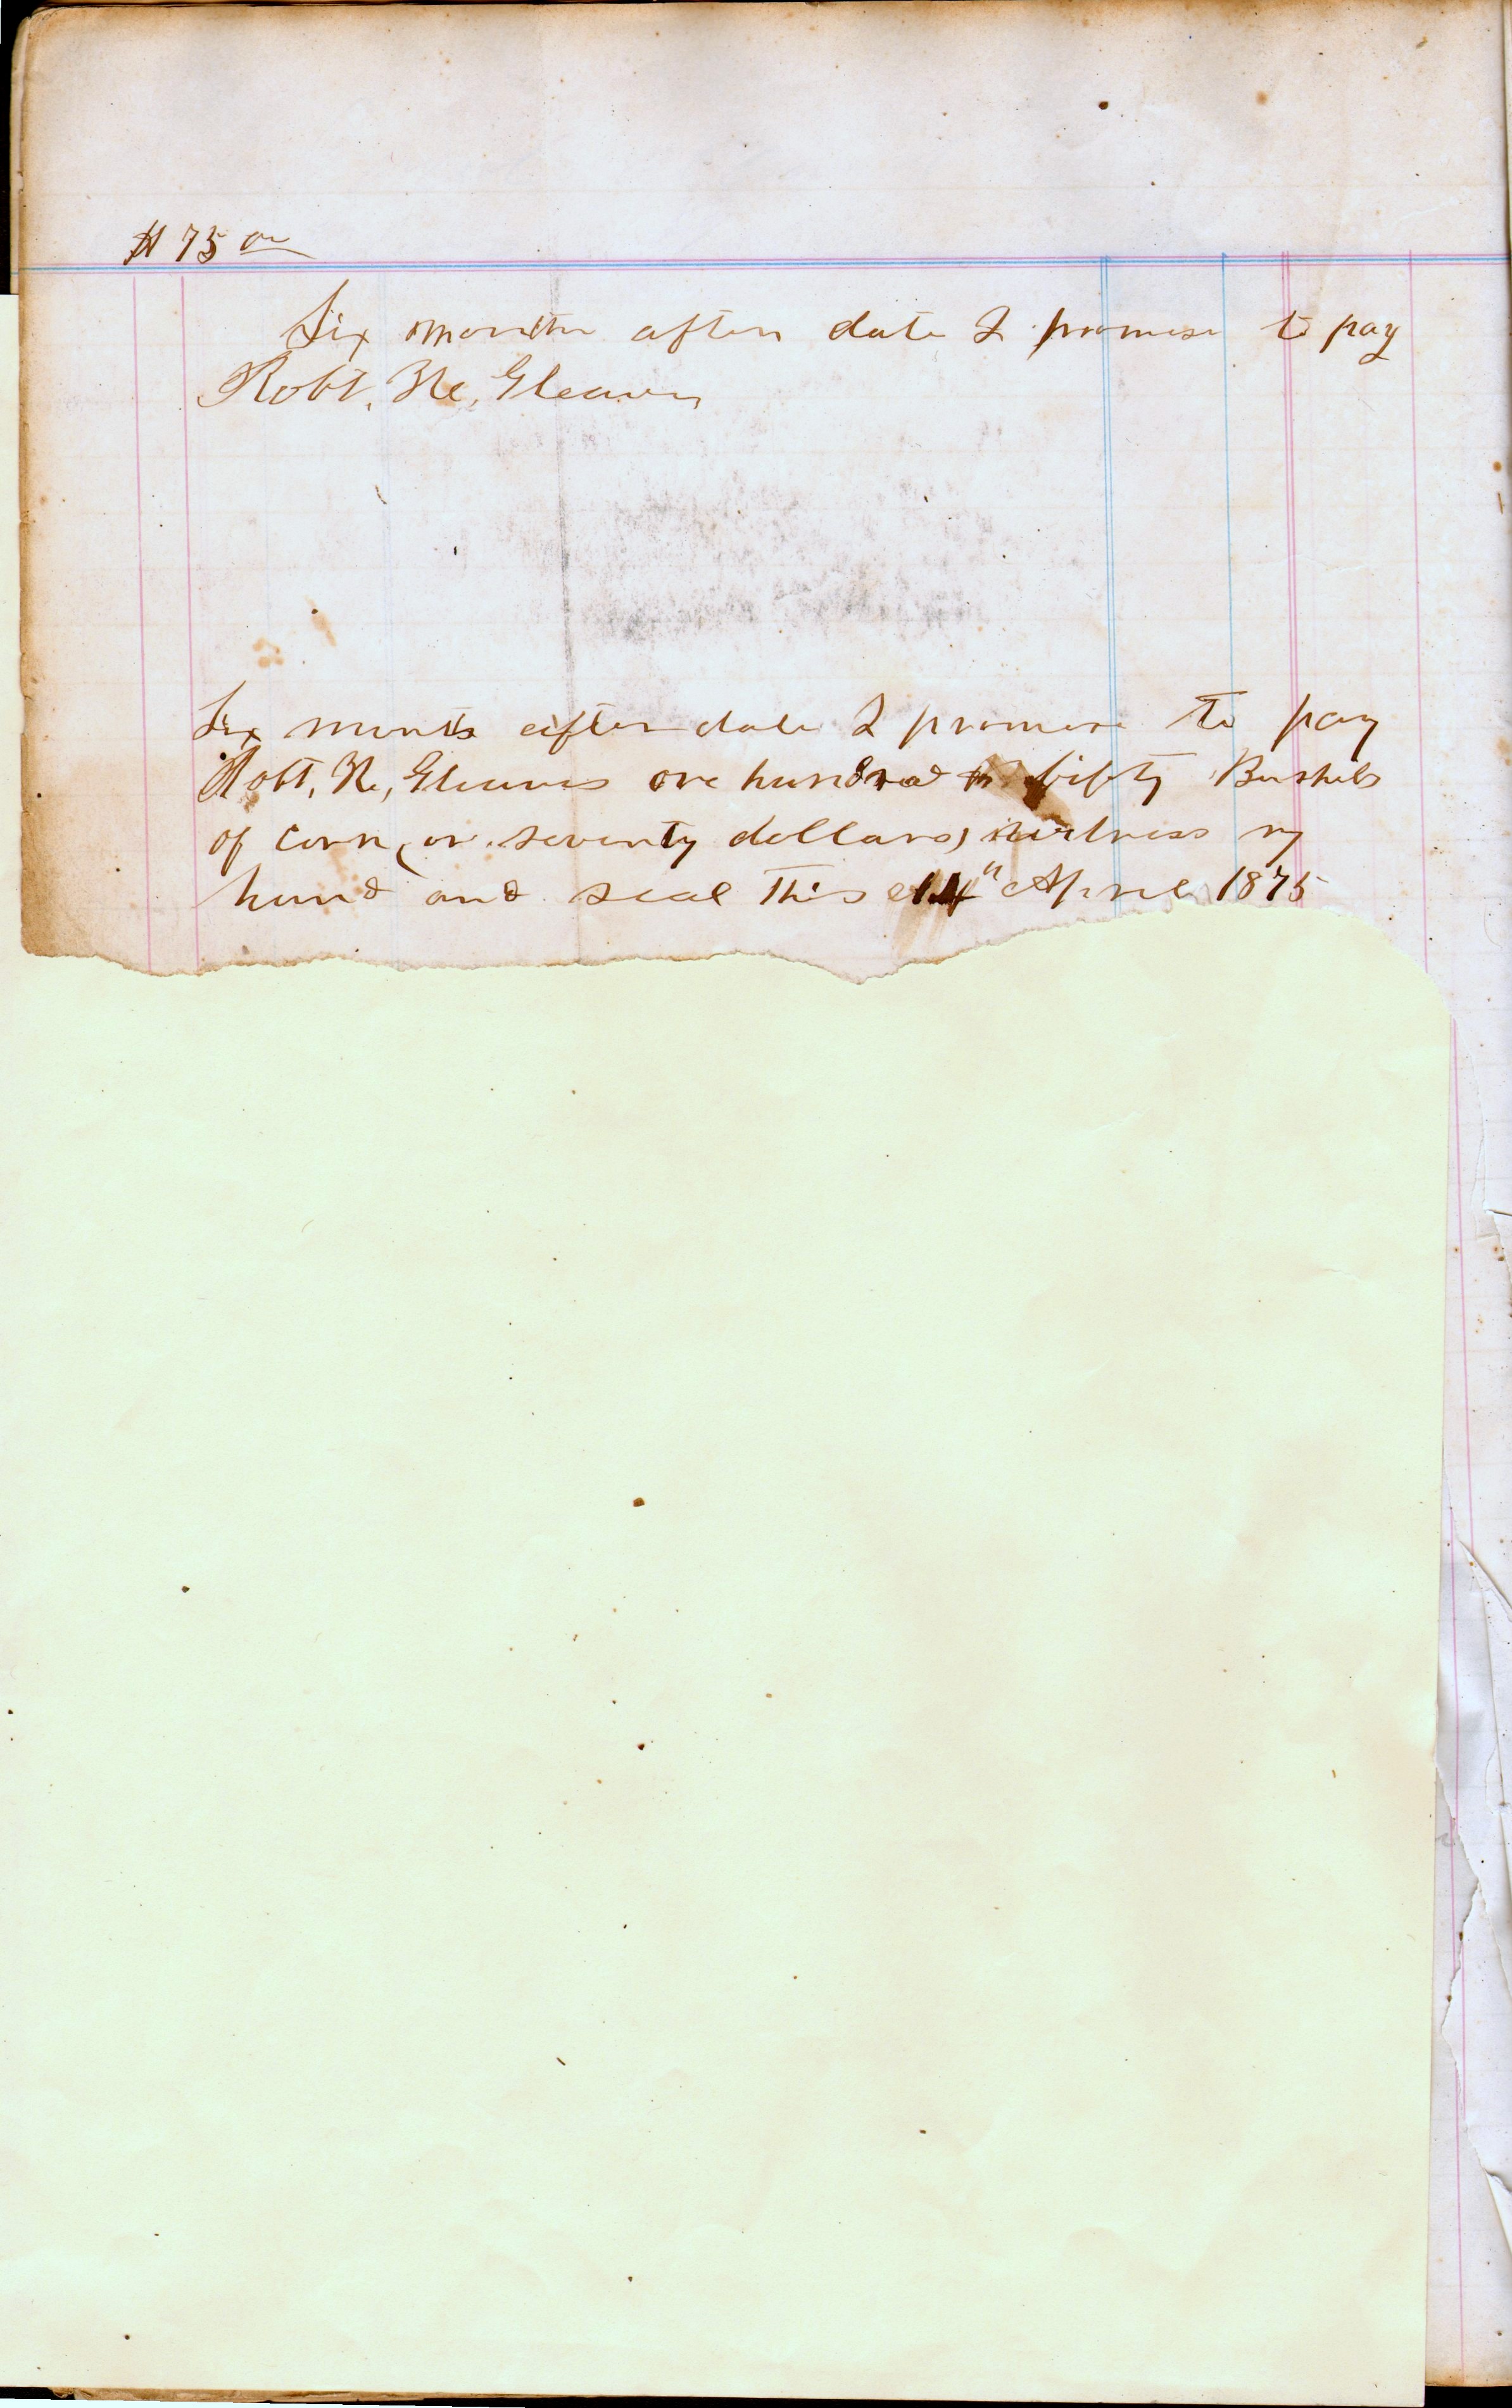 $ 75 00
Six months after date I promise to pay
Robt. Mc, Gleaves
Six months after date I promise to pay
Robt, Mc, Gleaves one hundred fifty Bushels
of corn, (or seventy dollars) witness my
hand and seal this 14" April 1875